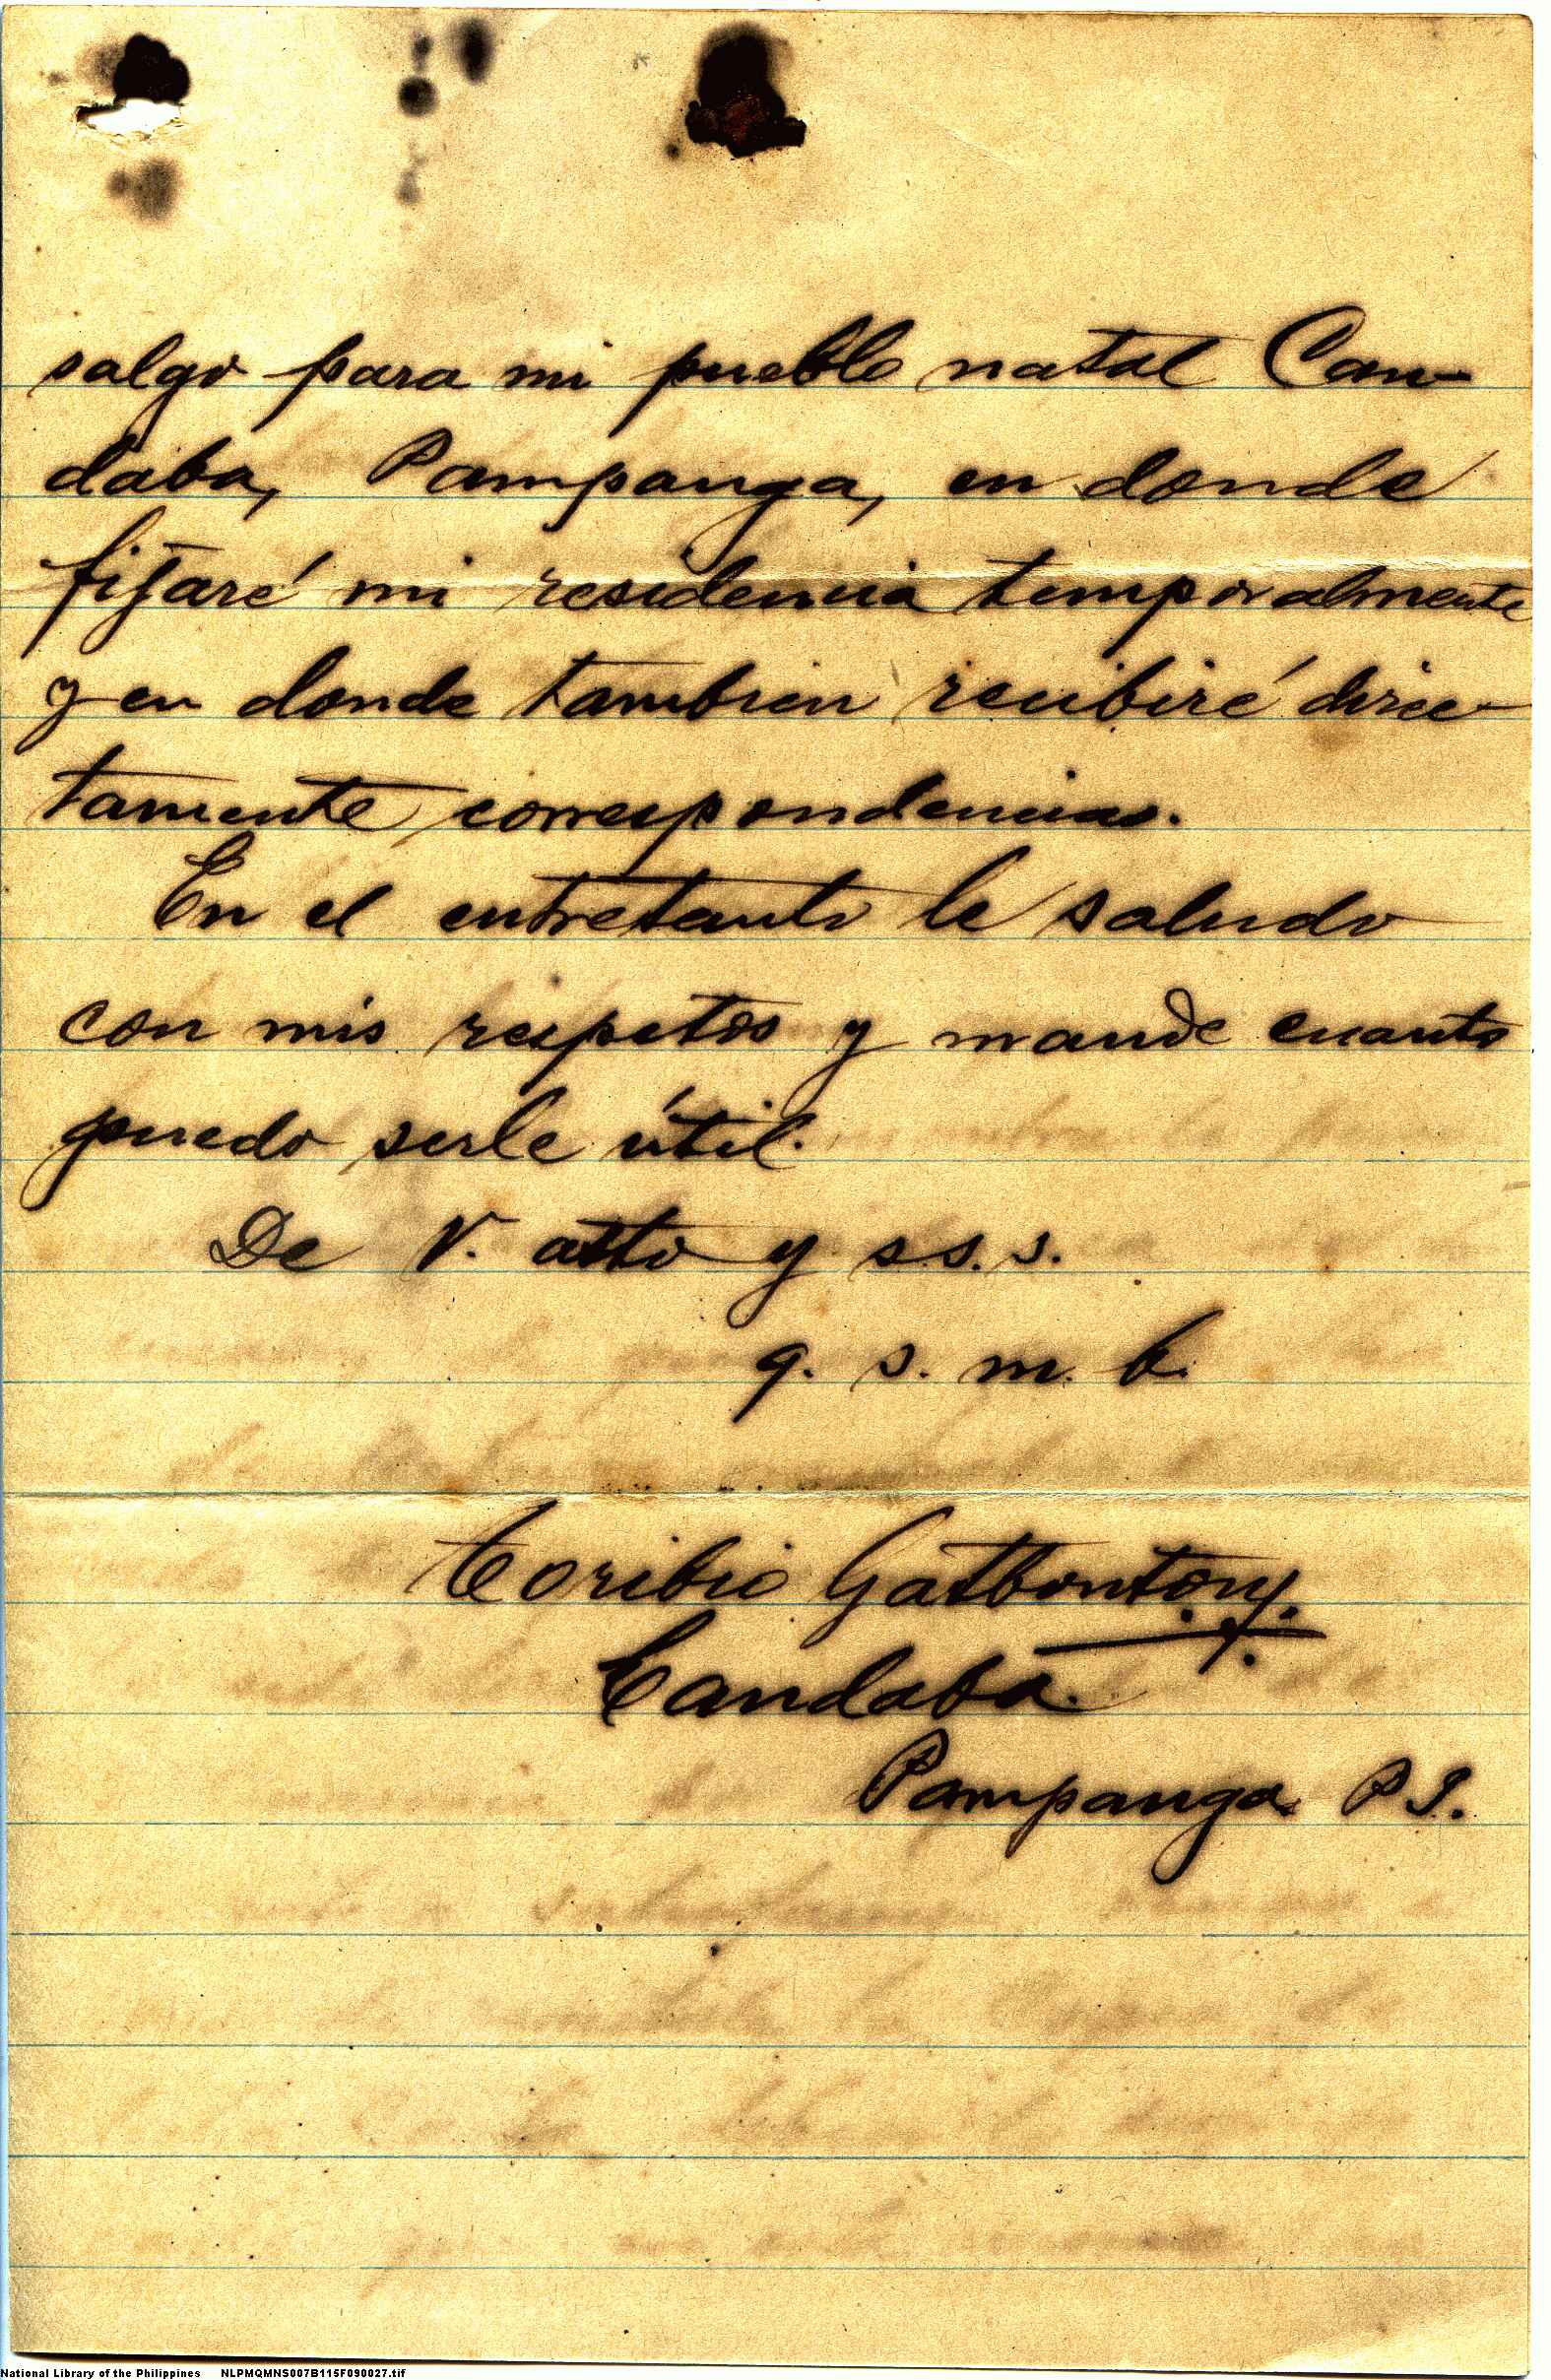 salgo para mi pueblo natal Can-
daba, Pampanga, en donde
fijaré mi residencia temporalmente
y en donde tambien recibiré direc-
tamente correspondencias.
En el entretanto le saludo
con mis respetos y mande cuanto
puedo serle útil.
De V. atto y s.s.s.
q. s. m. b.
Toribio Gatbonton y.
Candaba.
Pampanga. P I.
National Library of the Philippines NLPMQMNS007B115F090027.tif